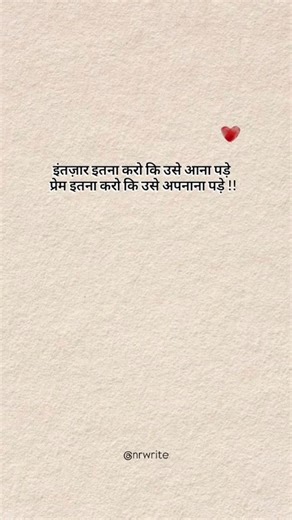 इंतज़ार इतना करो कि उसे आना पड़े
प्रेम इतना करो कि उसे अपनाना पड़े !!
@nrwrite